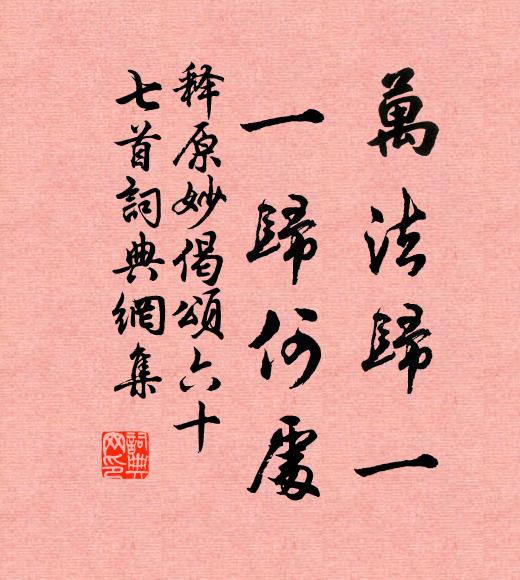 萬法歸一
一歸何處
释原妙偈頌六十
七首詞典網集
詞典
网印